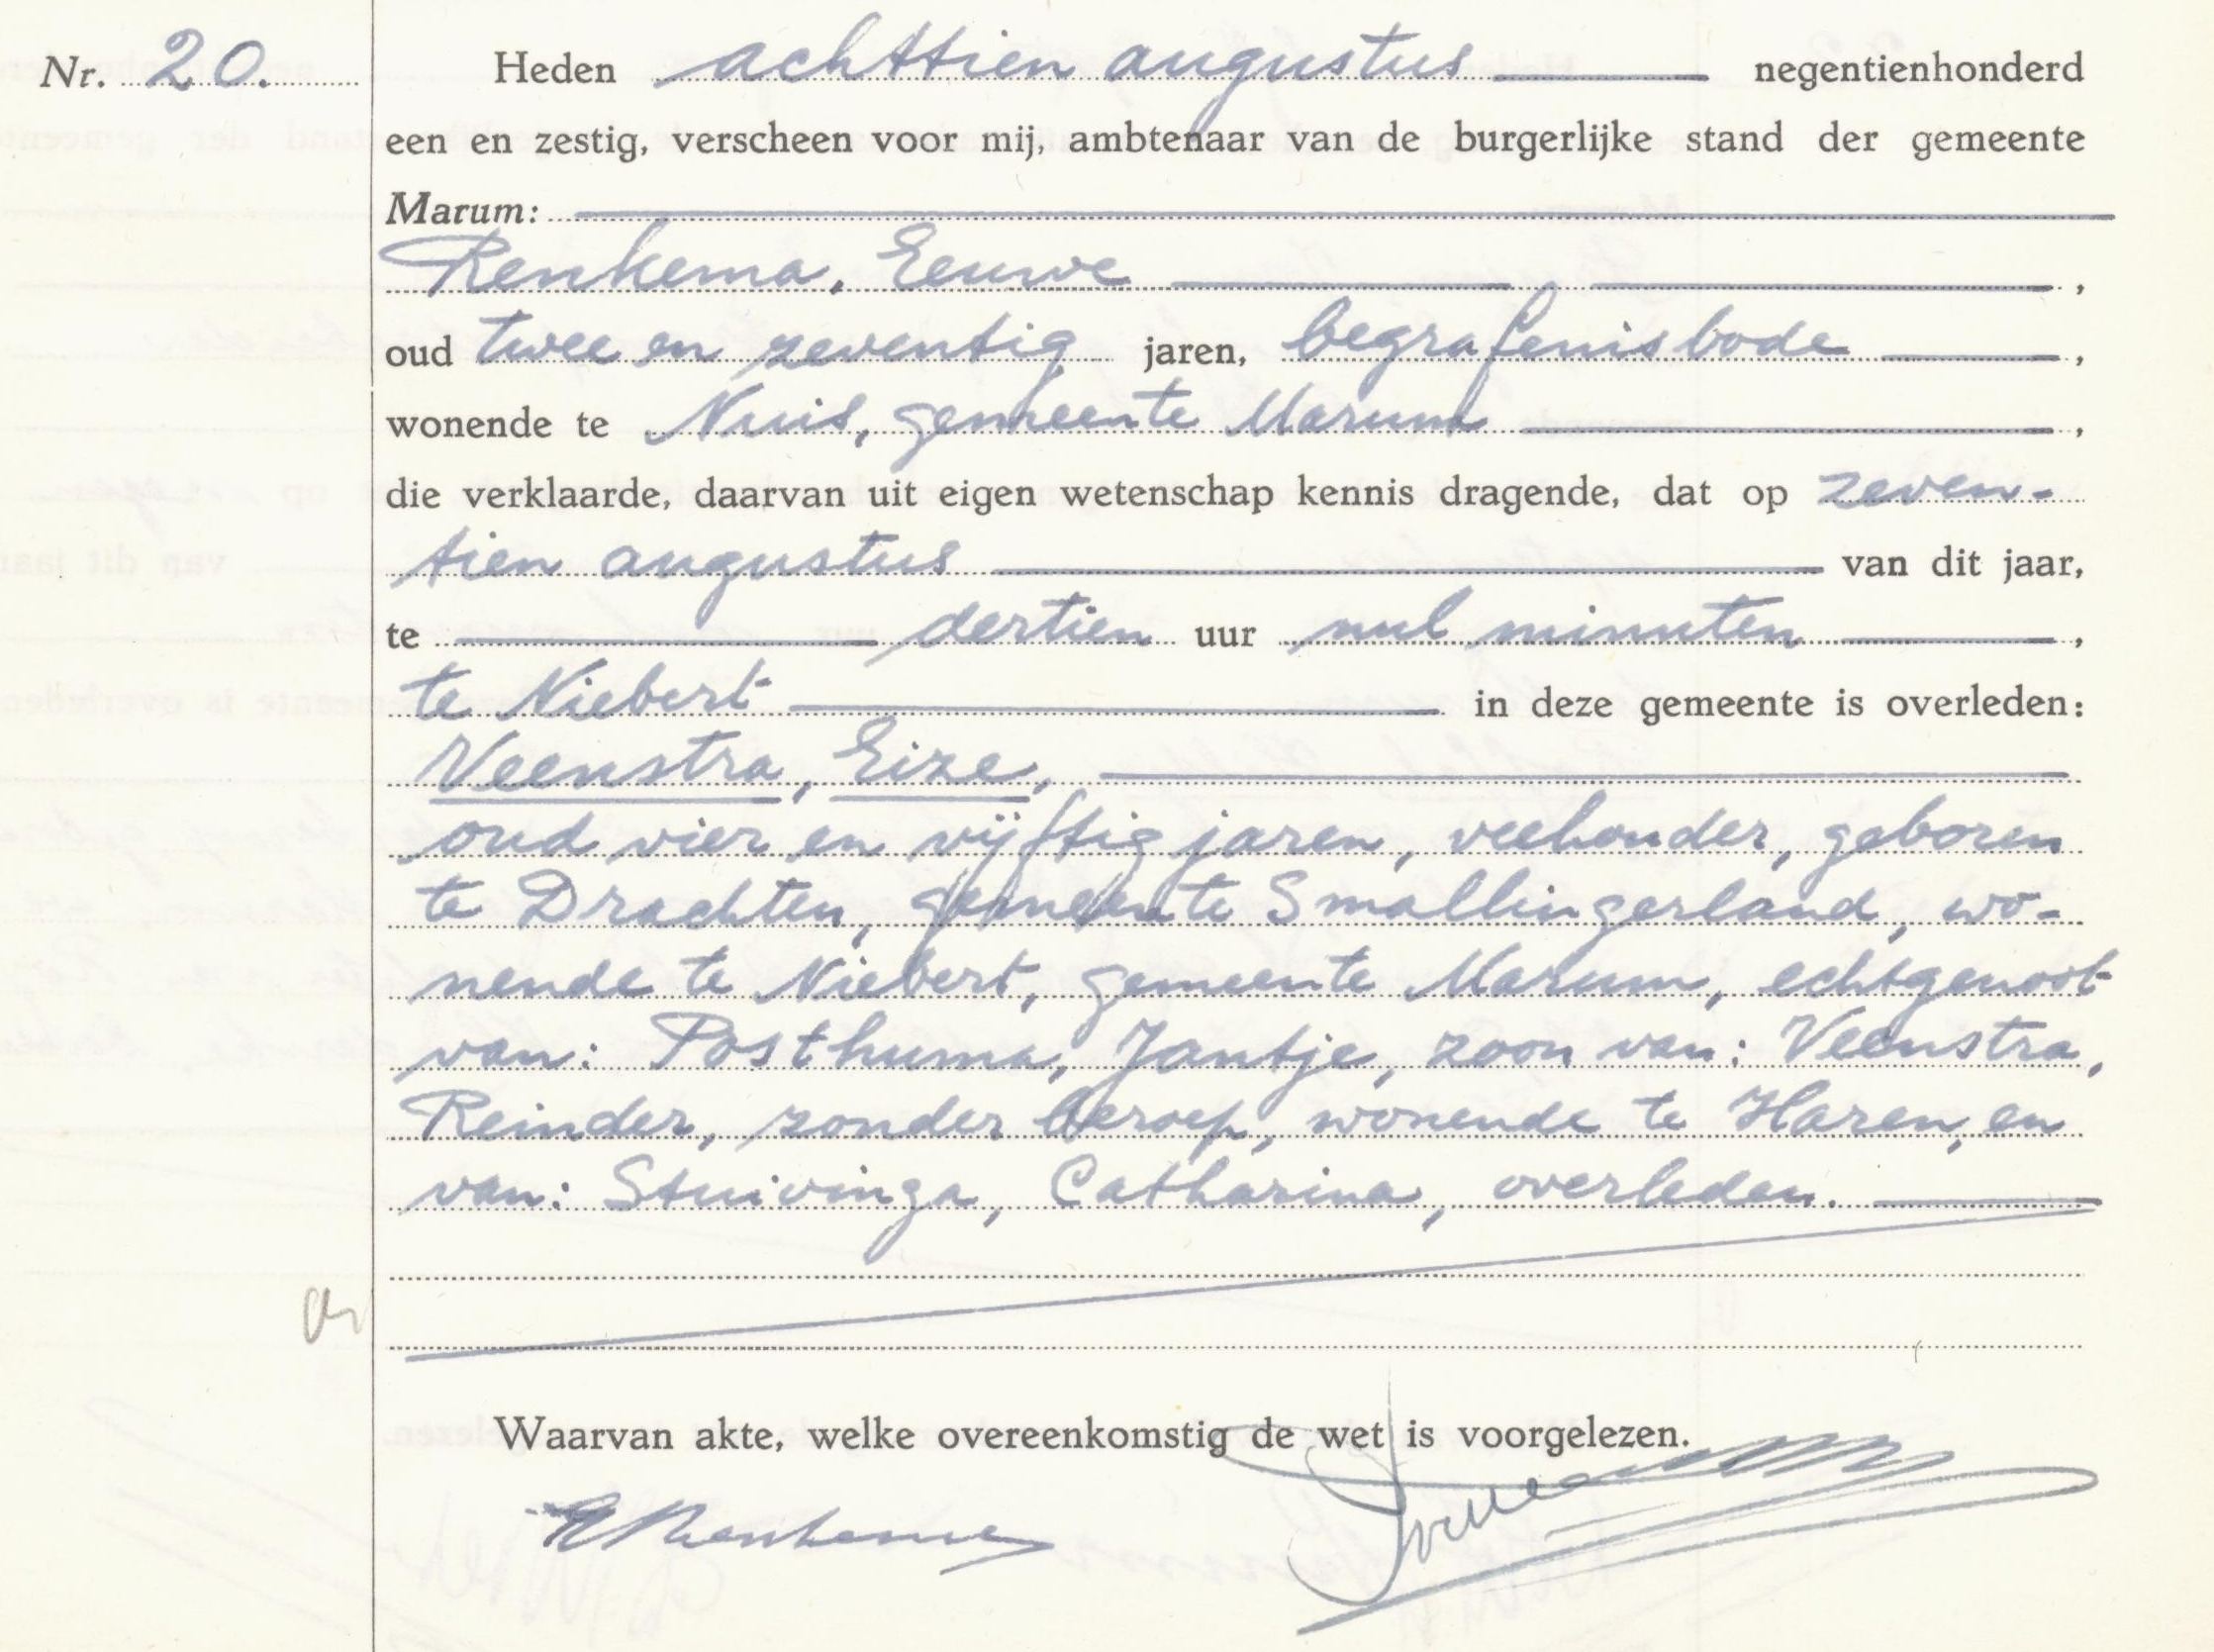 Nr. 20.
Heden achttien augustus negentienhonderd
een en zestig, verscheen voor mij, ambtenaar van de burgerlijke stand der gemeente
Marum:
Renkema, Eeuwe ,
oud twee en zeventig jaren, begrafenisbode ,
wonende te Nuis, gemeente Marum ,
die verklaarde, daarvan uit eigen wetenschap kennis dragende, dat op zeven-
tien augustus van dit jaar,
te dertien uur nul minuten ,
te Niebert in deze gemeente is overleden:
Veenstra, Eize,
oud vier en vijftig jaren, veehouder, geboren
te Drachten, gemeente Smallingerland, wo-
nende te Niebert, gemeente Marum, echtgenoot
van: Posthuma, Jantje, zoon van: Veenstra,
Reinder, zonder beroep, wonende te Haren, en
van: Stuivinga, Catharina, overleden.
Waarvan akte, welke overeenkomstig de wet is voorgelezen.
E Renkema